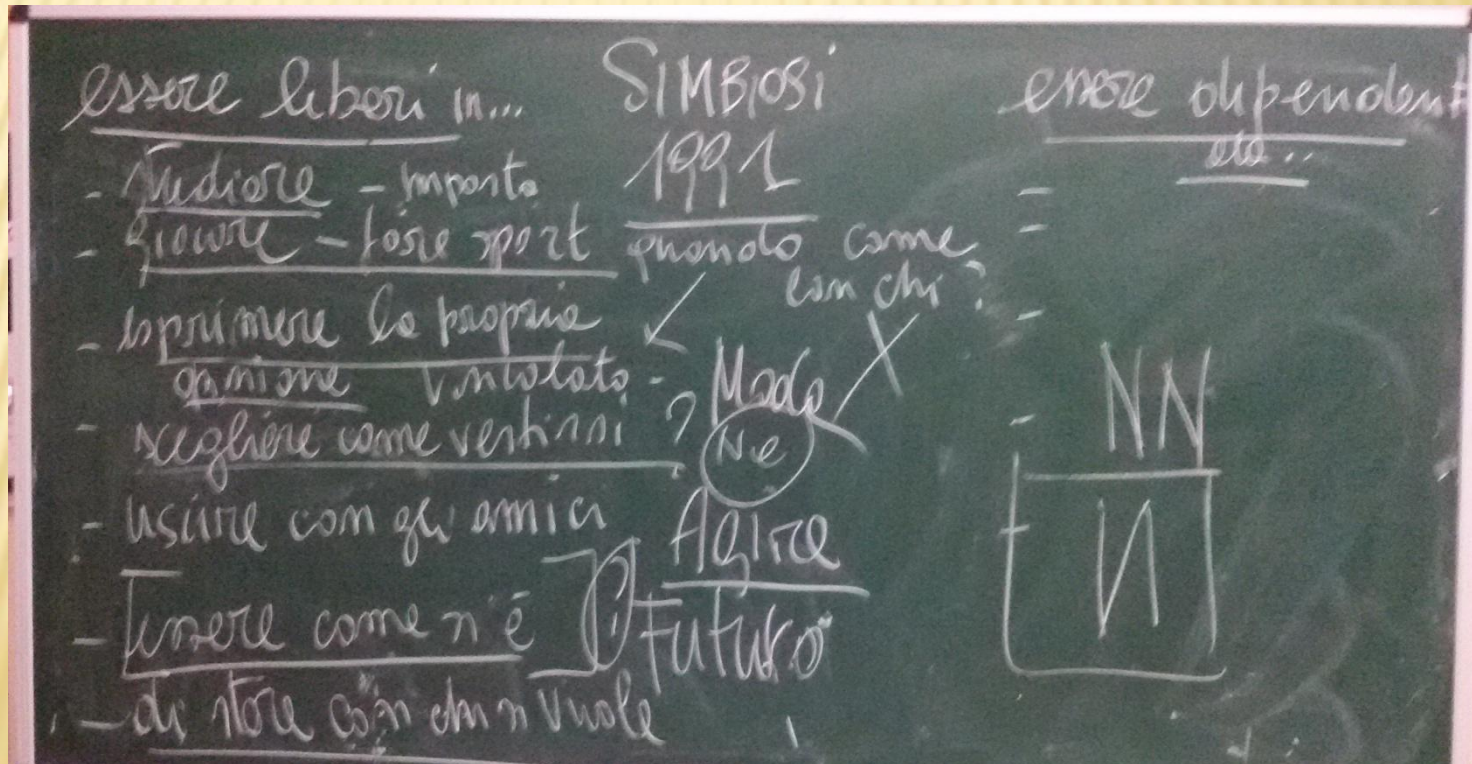 essere liberi in...
- studiare - imposto
- giocare - fare sport
- esprimere la propria
opinione vincolato -
- scegliere come vestirsi ?
- uscire con gli amici
- essere come si è
- di stare con chi si vuole
SIMBIOSI
1991
quando come
con chi?
Moda
Agire
Futuro
essere dipendent
da..
NN
N